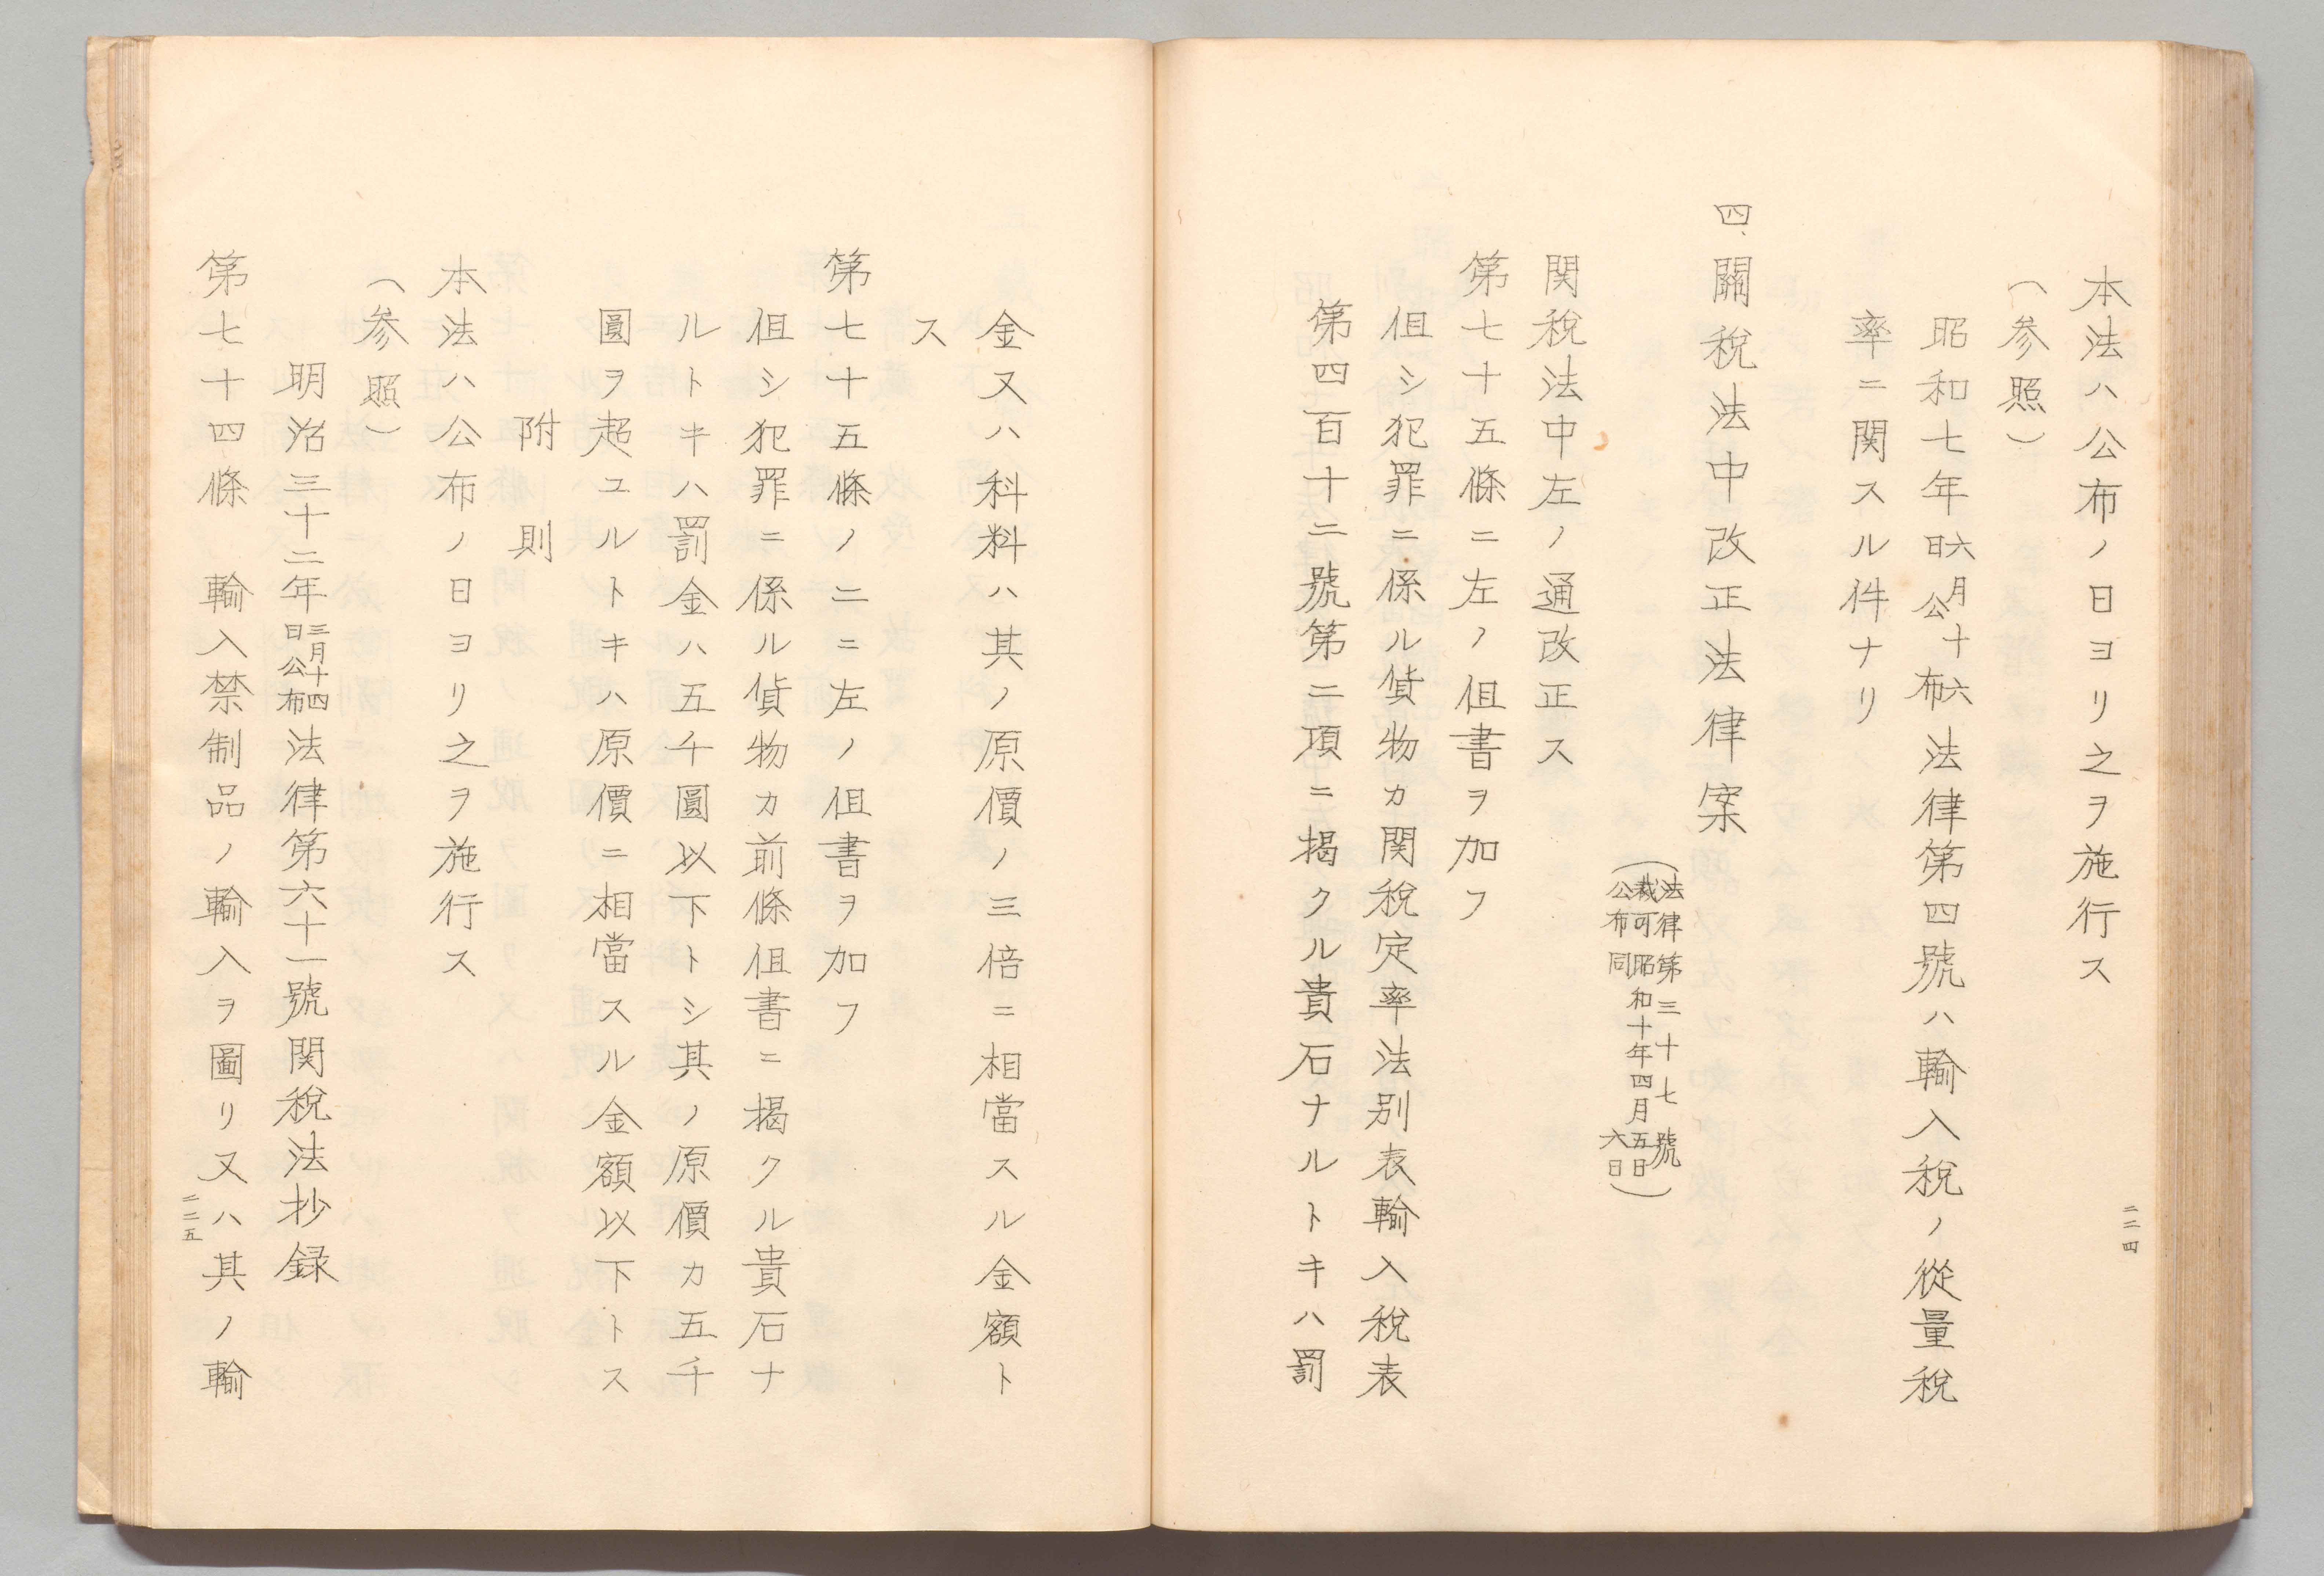 本法ハ公布ノ日ヨリ之ヲ施行ス
（参照）
昭和七年六月十六日公布法律第四號ハ輸入税ノ從量税
率ニ関スル件ナリ
四、關税法中改正法律案
（法律第三十七號
裁可昭和十年四月五日
公布同六日）
関税法中左ノ通改正ス
第七十五條ニ左ノ但書ヲ加フ
但シ犯罪ニ係ル貨物カ関税定率法別表輸入税表
第四百十二號第二項ニ揭クル貴石ナルトキハ罰
二二四
金又ハ科料ハ其ノ原價ノ三倍ニ相當スル金額ト
ス
第七十五條ノ二ニ左ノ但書ヲ加フ
但シ犯罪ニ係ル貨物カ前條但書ニ揭クル貴石ナ
ルトキハ罰金ハ五千圓以下トシ其ノ原價カ五千
圓ヲ超ユルトキハ原價ニ相當スル金額以下トス
附則
本法ハ公布ノ日ヨリ之ヲ施行ス
（参照）
明治三十二年三月十四日公布法律第六十一號関税法抄録
第七十四條　輸入禁制品ノ輸入ヲ圖リ又ハ其ノ輸
二二五